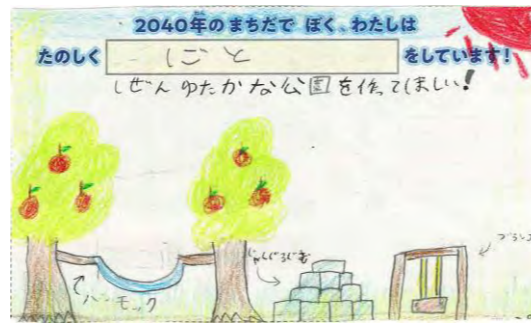 2040年のまちだで ぼく、わたしは
たのしく しごと をしています!
しぜんゆたかな公園を作ってほしい!
じゃんぐるじむ
ブランコ
ハンモック